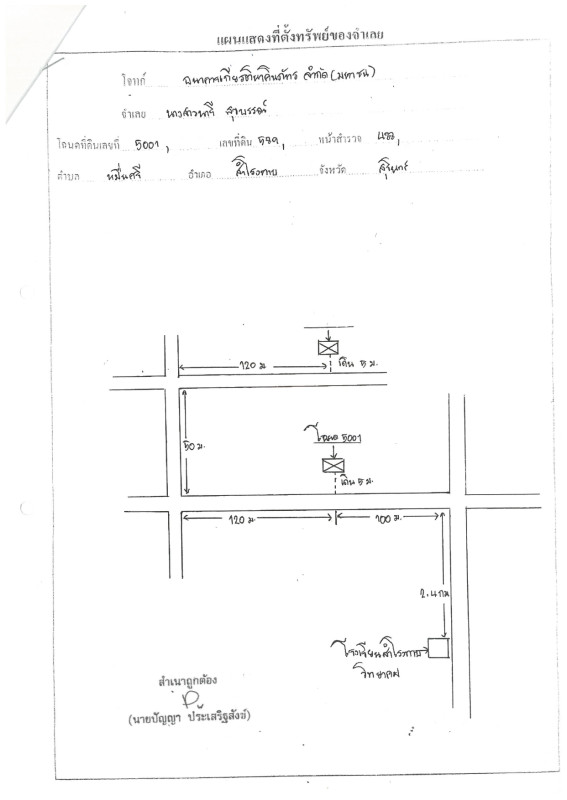 แผนแสดงที่ตั้งทรัพย์ของจำเลย
โจทก์ ธนาคารเกียรตินาคินภัทร จำกัด (มหาชน)
จำเลย นางสาวนารี สุขบรรณ์
โฉนดที่ดินเลขที่ 5001, เลขที่ดิน 539, หน้าสำรวจ 433,
ตำบล หมื่นศรี อำเภอ สำโรงทาบ จังหวัด สุรินทร์
120 ม เดิน 5 ม.
50 ม.
โฉนด 5001
เดิน 5 ม.
120 ม. 100 ม.
2.4 กม
โรงเรียนสำโรงทาบ
วิทยาคม
สำเนาถูกต้อง
(นายปัญญา ประเสริฐสังข์)